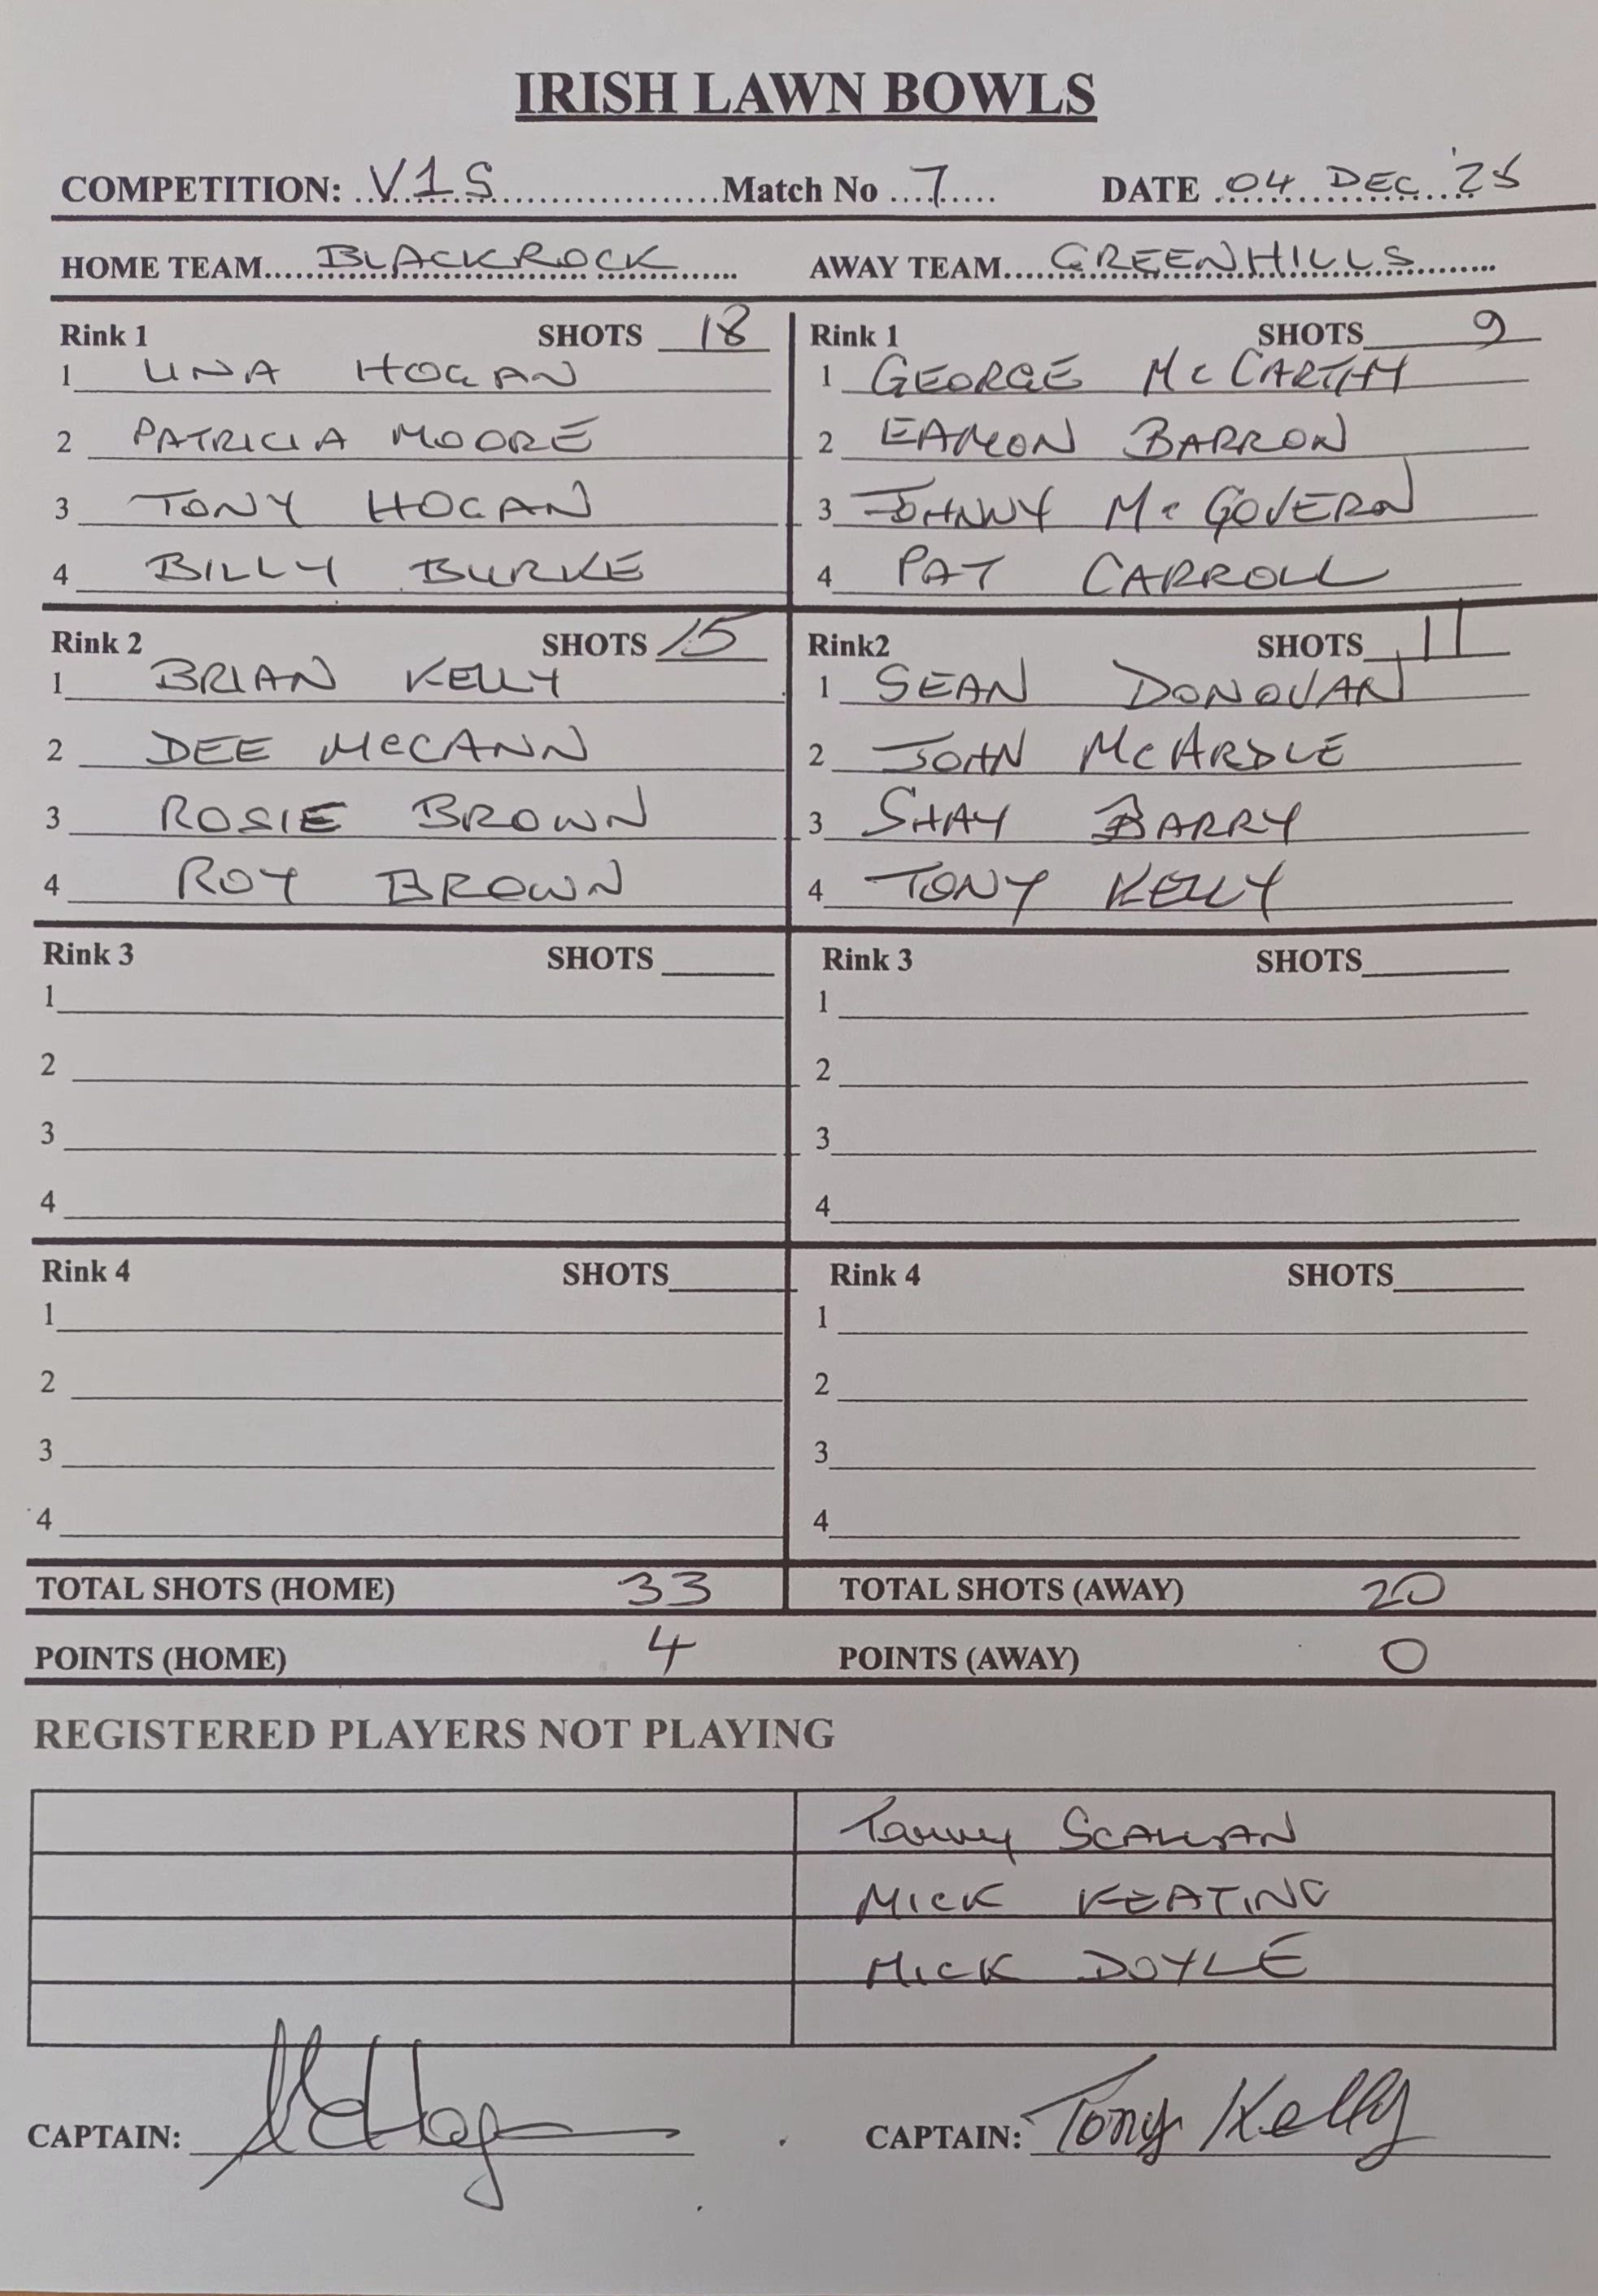 IRISH LAWN BOWLS
COMPETITION: V1S Match No 7 DATE 04 DEC '25
HOME TEAM BLACKROCK AWAY TEAM GREENHILLS
Rink 1 SHOTS 18
1 UNA HOGAN
2 PATRICIA MOORE
3 TONY HOGAN
4 BILLY BURKE
Rink 1 SHOTS 9
1 GEORGE McCARTHY
2 EAMON BARRON
3 JOHNNY McGOVERN
4 PAT CARROLL
Rink 2 SHOTS 15
1 BRIAN KELLY
2 DEE McCANN
3 ROSIE BROWN
4 ROY BROWN
Rink2 SHOTS 11
1 SEAN DONOVAN
2 JOHN McARDLE
3 SHAY BARRY
4 TONY KELLY
Rink 3 SHOTS
1
2
3
4
Rink 3 SHOTS
1
2
3
4
Rink 4 SHOTS
1
2
3
4
Rink 4 SHOTS
1
2
3
4
TOTAL SHOTS (HOME) 33 TOTAL SHOTS (AWAY) 20
POINTS (HOME) 4 POINTS (AWAY) 0
REGISTERED PLAYERS NOT PLAYING
SCALLAN
MICK KEATING
MICK DOYLE
CAPTAIN: CAPTAIN: Tony Kelly